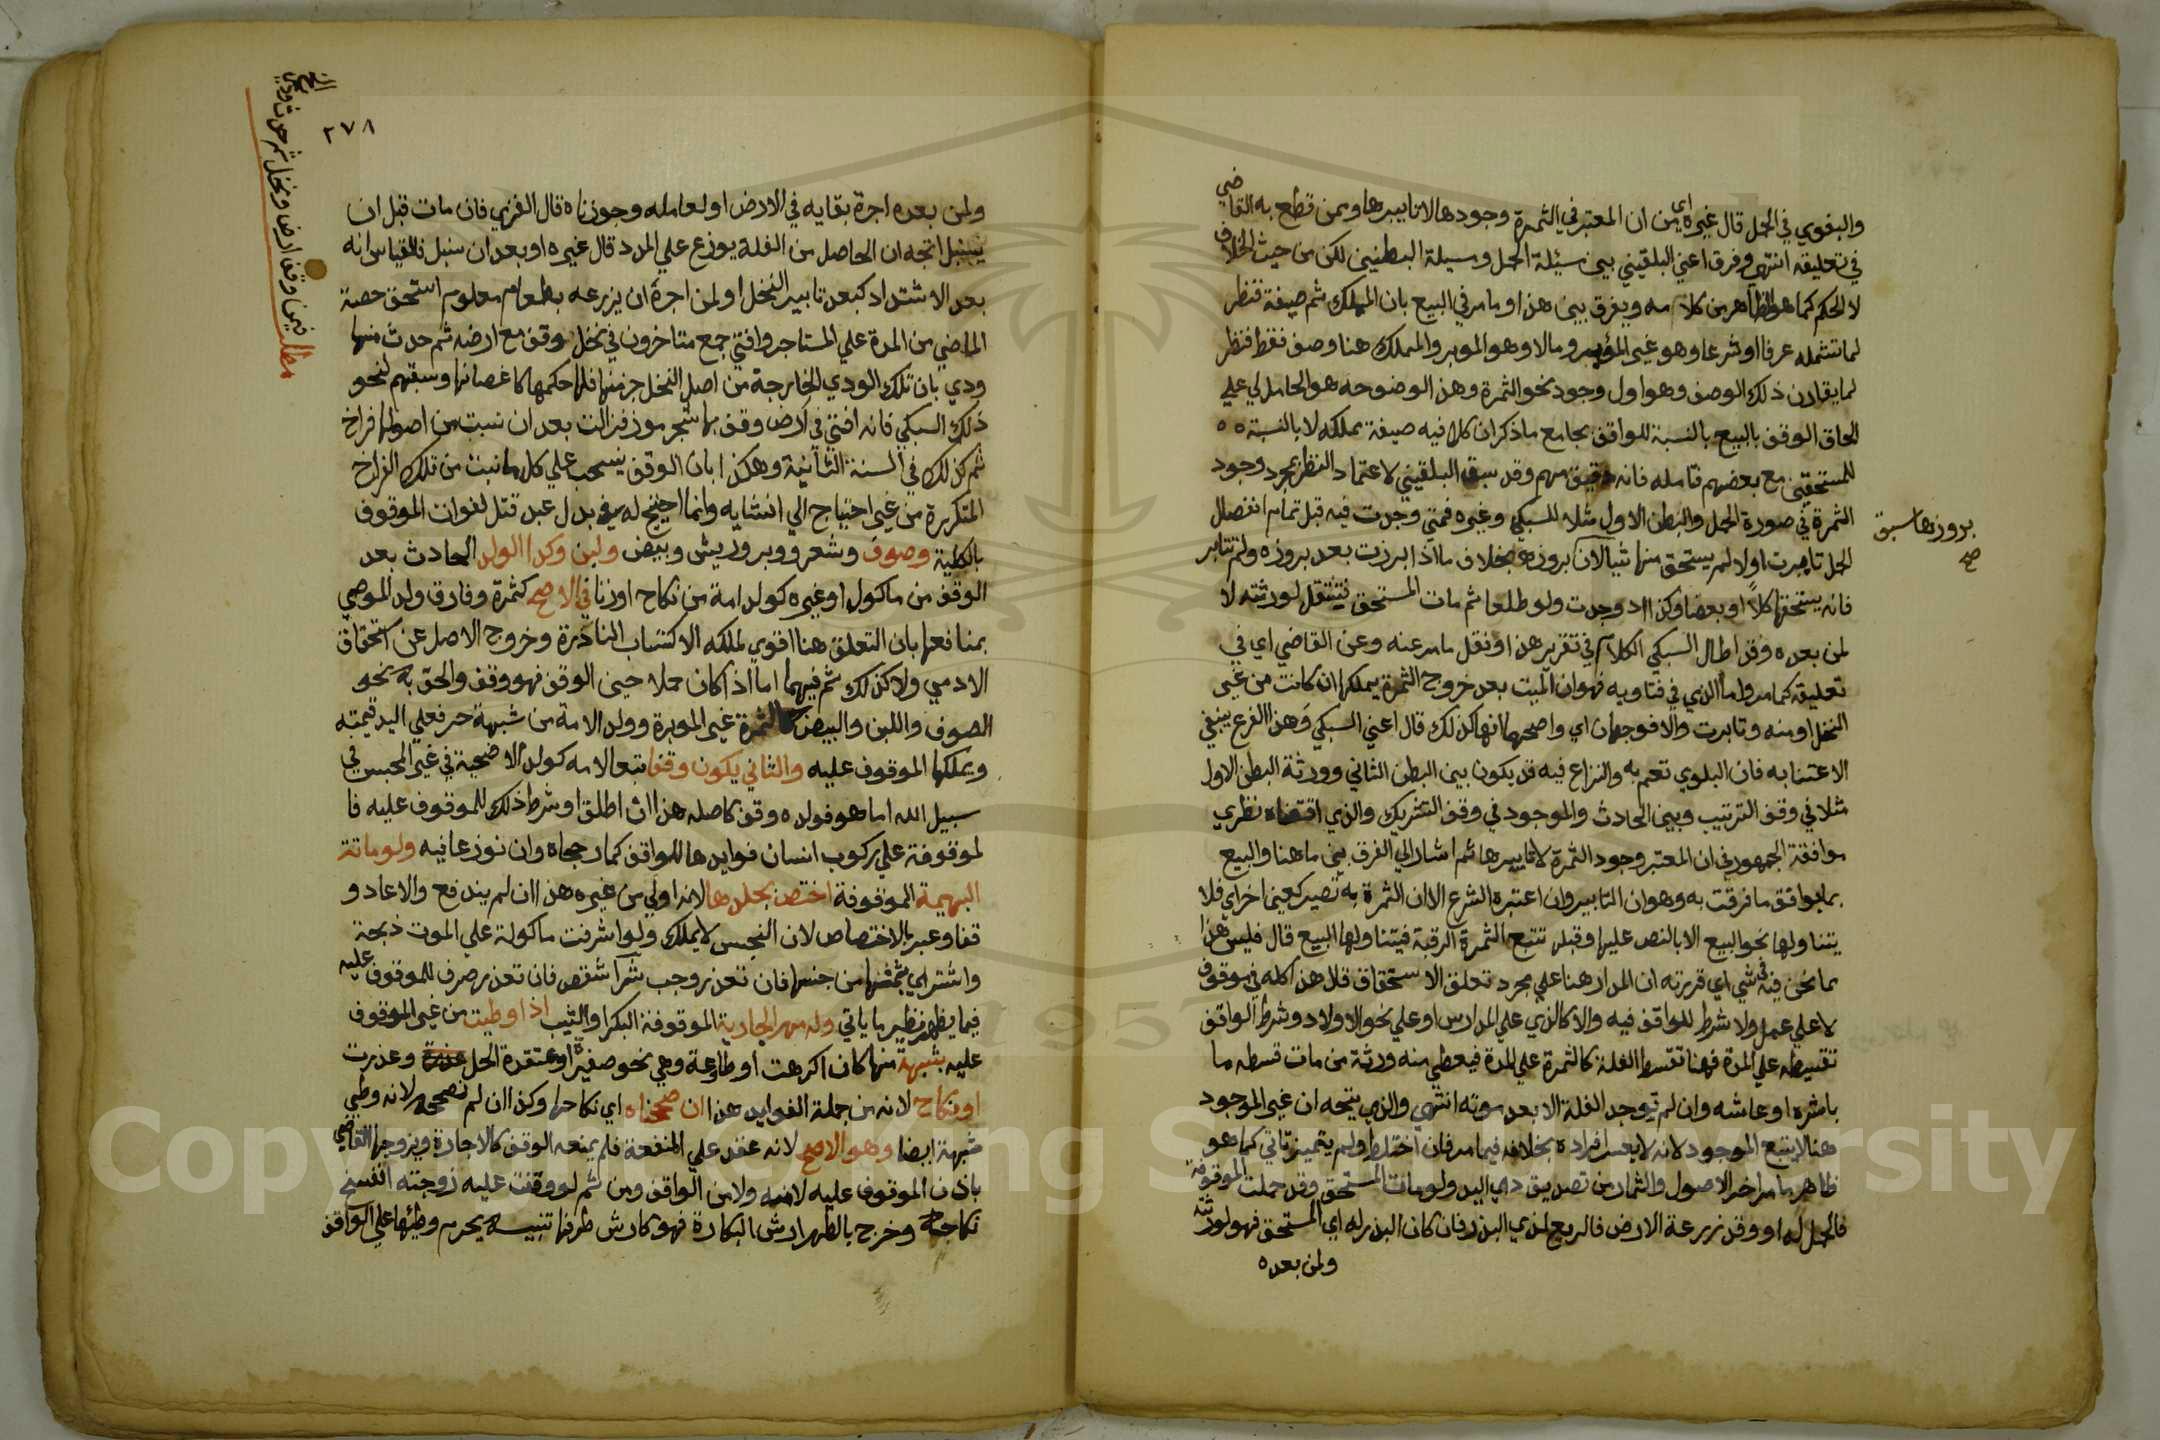 والبغوي في الحمل قال غيره اي من ان المعتبر في الثمرة وجودها لا تابيرها وبمن قطع به القاضي
في تعليقه انتهى وفرق اعني البلقيني بين مسئلة الحمل ومسيلة البطنين لكن من حيث الخلاف
لا الحكم كما هو الظاهر من كلامه ويفرق بين هذا وما مر في البيع بان المملك ثم صيغة فنظر
لما تشمله عرفا او شرعا وهو غير المؤبر ومالا وهو الموبر والمملك هنا وصف فقط فنظر
لما يقارن ذلك الوصف وهو اول وجود نحو الثمرة وهذا لوضوحه هو الحامل لي علي
الحاق الوقف بالبيع بالنسبة للواقف بجامع ما ذكر ان كلا فيه صيغة مملكه لا بالنسبة ه ه
للمستحقين مع بعضهم فتامله فانه دقيق مهم وقد سبق البلقيني لاعتماد النظر بمجرد وجود
الثمرة في صورة الحمل والبطن الاول مثلا للسبكي وغيره فمتي وجدت فيه قبل تمام انفصال
الحمل تابرت اولا لم يستحق منها شيا لان بروزها بخلاف ما اذا برزت بعد بروزه ولم تتابر
بروزها سبق
صح
فانه يستحقها كلا او بعضا وكذا اذ وجدت ولو طلعا ثم مات المستحق فتنتقل لورثته لا
لمن بعده وقد اطال السبكي الكلام في تقرير هذا ونقل ما مر عنه وعن القاضي اي في
تعليقه كما مر واما الذي في فتاويه فهو ان الميت بعد خروج الثمرة يملكها ان كانت من غير
النخل او منه وتابرت والا فوجهان اي واصحهما انها كذلك قال اعني السبكي وهذا الفرع ينبغي
الاعتنا به فان البلوي تعم به والنزاع فيه قد يكون بين البطن الثاني وورثة البطن الاول
مثلا في وقف الترتيب وبين الحادث والموجود في وقف التشريك والذي اقتضاه نظري
موافقة الجمهور في ان المعتبر وجود الثمرة لا تابيرها ثم اشار الي الفرق بين ما هنا والبيع
بما يوافق ما فرقت به وهو ان التابير وان اعتبره الشرع الا ان الثمرة به تصير كعين اخراي فلا
يتناولها نحو البيع الا بالنص عليها وقبله تتبع الثمرة الرقبة فيتناولها البيع قال فليس هذا
مما نحن فيه في شي اي قررته ان المدار هنا علي مجرد تعلق الاستحقاق قلا هذا كله في موقوف
لا علي عمل ولا شرط للواقف فيه والا كالذي علي المدارس او علي نحو الاولاد وشرط الواقف
تقسيطه علي المدة فهنا تقسط الغلة كالثمرة علي المدة فيعطي منه ورثة من مات قسطه ما
باشره او عاشه وان لم توجد الغلة الا بعد موته انتهي والذي يتجه ان غير الموجود
هنا لا يتبع الموجود لانه لا يعسر افراده بخلافه فيما مر فان اختلط ولم يتميز تاتي كما هو
ظاهر ما مر اخر الاصول والثمار من تصديق ذي اليد ولو مات المستحق وقد حملت الموقوفة
فالحمل له او وقد زرعت الارض فالريع لذي البذر فان كان البذر له اي المستحق فهو لورثته
ولمن بعده
٢٧٨
ولمن بعده اجرة بقايه في الارض او لعامله وجوزناه قال الغزي فان مات قبل ان
يسبل اتجه ان الحاصل من الغلة يوزع علي المدد قال غيره او بعد ان سنبل فالقياس انه
بعد الاشتداد كبعد تابير النخل اولمن اجره ان يزرعه بطعام معلوم استحق حصة
الماضي من المدة علي المستاجر وافتي جمع متاخرون في نخل وقف مع ارضه ثم حدث منها
ودي بان تلك الودي الخارجة من اصل النخل جز منها فلها حكمها كاغصانها وسبقهم لنحو
ذلك السبكي فانه افتي في ارض وقف بها شجر موز فزالت بعد ان نبت من اصولها فراخ
ثم كذلك في السنة الثانية وهكذا بان الوقف ينسحب علي كل ما نبت من تلك الفراخ
المتكررة من غير احتياج الي انشايه وانما احتيج له في بدل عبد قتل لفوات الموقوف
بالكلية وصوف وشعر ووبر وريش وبيض ولبن وكذا الولد الحادث بعد
الوقف من ماكول او غيره كولد امة من نكاح او زنا في الاصح كثمرة وفارق ولد الموصي
بمنافعها بان التعلق هنا اقوي لملكه الاكتساب النادرة وخروج الاصل عن استحقاق
الادمي ولا كذلك ثم فيهما اما اذا كان حملا حين الوقف فهو وقف والحق به نحو
الصوف واللبن والبيض كالثمرة غير الموبرة وولد الامة من شبهة حر فعلي ابيه قيمته
ويملكها الموقوف عليه والثاني يكون وقفا تبعا لامه كولد الاضحية في غير المحبس في
سبيل الله اما هو فولده وقف كاصله هذا ان اطلق او شرط ذلك للموقوف عليه فا
لموقوفة علي ركوب انسان فوايدها للواقف كما رجحاه وان نوزعا فيه ولو ماتت
البهيمة الموقوفة اختص بجلدها لانه اولي من غيره هذا ان لم يندبغ والا عاد و
قفا وعبر بالاختصاص لان النجس لا يملك ولو اشرفت ماكولة علي الموت ذبحت
واشتري بثمنها من جنسها فان تعذر وجب شرآ شقص فان تعذر صرف للموقوف عليه
فيما يظهر نظير ما ياتي وله مهر الجارية الموقوفة البكر او الثيب اذا وطيت من غير الموقوف
عليه بشبهة منها كان اكرهت او طاوعته وهي نحو صغيرة او معتقدة الحل وعذرت
او نكاح لانه من جملة الفوايد هذا ان صححناه اي نكاحها وكذا ان لم نصححه لانه وطي
شبهة ايضا وهو الاصح لانه عقد علي المنفعة فلم يمنعه الوقف كالاجارة ويزوجها القاضي
باذن الموقوف عليه لا منه ولا من الواقف ومن ثم لو وقفت عليه زوجته انفسخ
نكاحه وخرج بالمهر ارش البكارة فهو كارش طرفها تنبيه يحرم وطئها علي الواقف
مطلب فيمن وقف ارض ونخل ثم حدث ودي